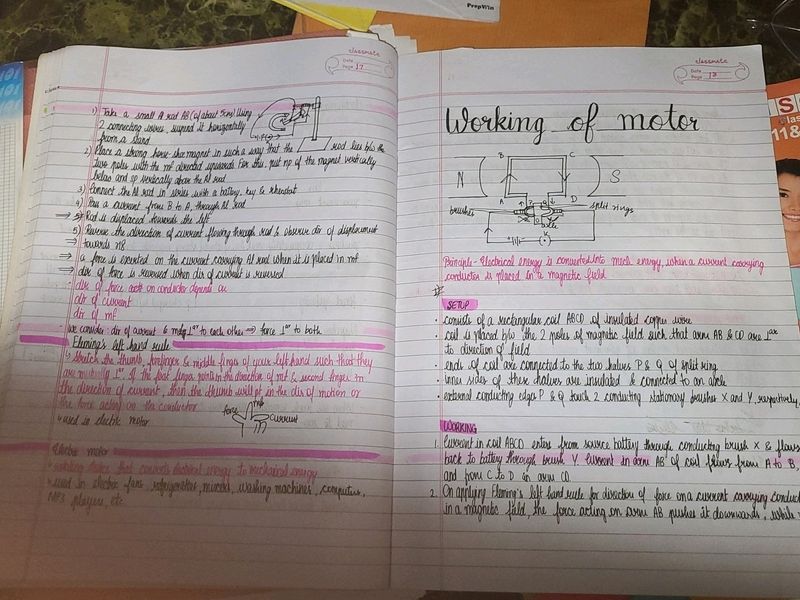 PrepWiz
classmate
Date
Page 17
1) Take a small Al rod AB (of about 5cm) Using
2 connecting wires, suspend it horizontally
from a stand
2) Place a strong horse shoe magnet in such a way that the rod lies b/w the
two poles with the mf directed upwards. For this, put np of the magnet vertically
below and sp vertically above the Al rod
3) Connect the Al rod in series with a battery, key & rheostat
4) Pass a current from B to A, through Al rod
⇒ Rod is displaced towards the left
5) Reverse the direction of current flowing through rod & observe dir of displacement
⇒ towards
⇒ a force is exerted on the current carrying Al rod when it is placed in mf
⇒ dir of force is reversed when dir of current is reversed
· dir of force on conductor depends on
dir of current
dir of mf
· we consider: dir of current & mf ⊥ar to each other ⇒ force ⊥ar to both
Fleming's left hand rule
↳ stretch the thumb, forefinger & middle finger of your left hand such that they
are mutually ⊥ar. If the first finger points in the direction of mf & second finger in
the direction of current, then the thumb will pt in the dir of motion or
the force acting on the conductor
↳ used in electric motor
force
mf
current
Electric motor
↳ rotating device that converts electrical energy to mechanical energy
↳ used in electric fans, refrigerators, mixers, washing machines, computers,
MP3 players, etc
classmate
Date
Page 18
Working of motor
B C
N S
A D
brushes
split rings
P Q
X Y
axle
K
+ -
Principle - Electrical energy is converted into mech energy, when a current carrying
conductor is placed in a magnetic field
SETUP
· consists of a rectangular coil ABCD of insulated copper wire
· coil is placed b/w the 2 poles of magnetic field such that arm AB & CD are ⊥ar
to direction of field
· ends of coil are connected to the two halves P & Q of split ring
· inner sides of these halves are insulated & connected to an axle
· external conducting edges P & Q touch 2 conducting stationary brushes X and Y, respectively
WORKING
1. Current in coil ABCD enters from source battery through conducting brush X & flows
back to battery through brush Y. Current in arm AB of coil flows from A to B,
and from C to D in arm CD
2. On applying Fleming's left hand rule for direction of force on a current carrying conductor
in a magnetic field, the force acting on arm AB pushes it downwards, while
11&